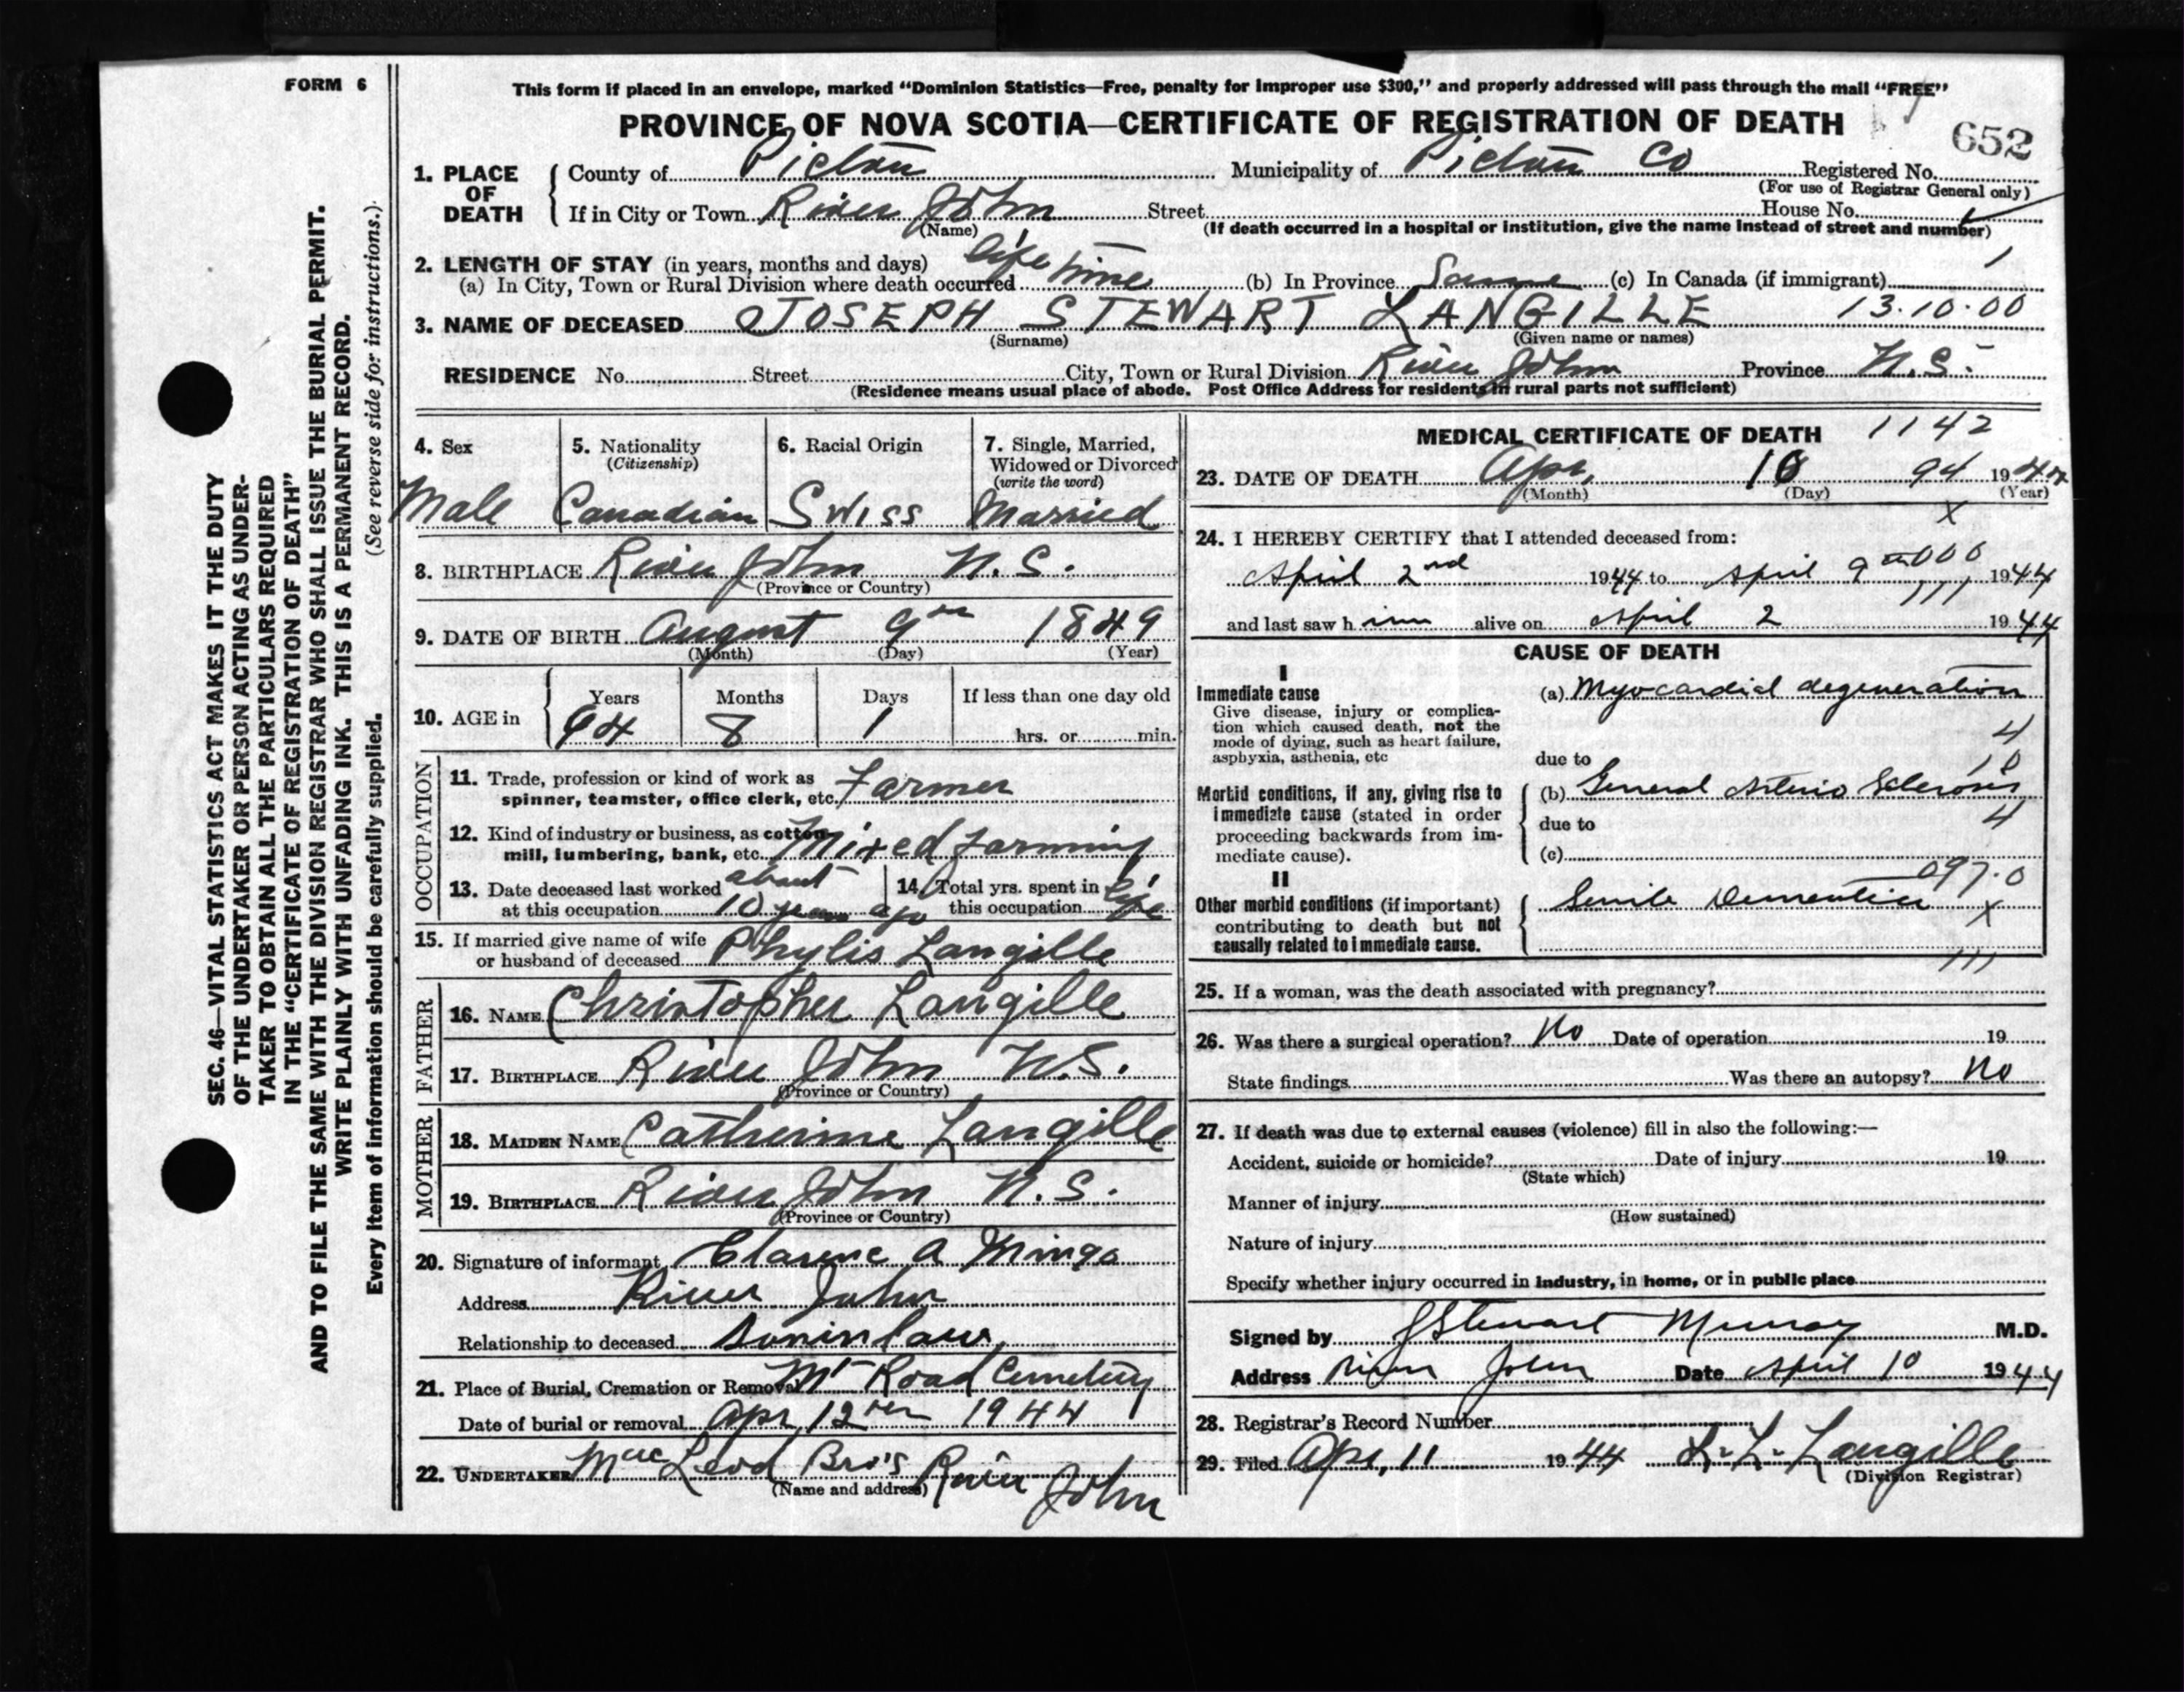 FORM 6
This form if placed in an envelope, marked "Dominion Statistics—Free, penalty for improper use $300," and properly addressed will pass through the mail "FREE"
PROVINCE OF NOVA SCOTIA—CERTIFICATE OF REGISTRATION OF DEATH
652
1. PLACE OF DEATH
County of Pictou Municipality of Pictou Co Registered No.
(For use of Registrar General only)
If in City or Town River John Street House No.
(Name) (If death occurred in a hospital or institution, give the name instead of street and number)
2. LENGTH OF STAY (in years, months and days)
(a) In City, Town or Rural Division where death occurred life time (b) In Province Same (c) In Canada (if immigrant)
3. NAME OF DECEASED JOSEPH STEWART LANGILLE 13.10.00
(Surname) (Given name or names)
RESIDENCE No. Street City, Town or Rural Division River John Province N.S.
(Residence means usual place of abode. Post Office Address for residents in rural parts not sufficient)
4. Sex
Male
5. Nationality
(Citizenship)
Canadian
6. Racial Origin
Swiss
7. Single, Married,
Widowed or Divorced
(write the word)
Married
8. BIRTHPLACE River John N.S.
(Province or Country)
9. DATE OF BIRTH August 9th 1849
(Month) (Day) (Year)
10. AGE in
Years Months Days If less than one day old
94 8 1 hrs. or min.
OCCUPATION
11. Trade, profession or kind of work as
spinner, teamster, office clerk, etc. Farmer
12. Kind of industry or business, as cotton
mill, lumbering, bank, etc. Mixed farming
13. Date deceased last worked about
at this occupation 10 years ago
14. Total yrs. spent in
this occupation life
15. If married give name of wife
or husband of deceased Phylis Langille
FATHER
16. NAME Christopher Langille
17. BIRTHPLACE River John N.S.
(Province or Country)
MOTHER
18. MAIDEN NAME Catherine Langille
19. BIRTHPLACE River John N.S.
(Province or Country)
20. Signature of informant Clarence A Mingo
Address River John
Relationship to deceased Son in law
21. Place of Burial, Cremation or Removal Mt Road Cemetery
Date of burial or removal Apr 12th 1944
22. UNDERTAKER MacLeod Bro's River John
(Name and address)
MEDICAL CERTIFICATE OF DEATH 1142
23. DATE OF DEATH Apr. 10 94 1944
(Month) (Day) (Year)
X
24. I HEREBY CERTIFY that I attended deceased from:
April 2nd 1944 to April 9th 000 1944
111
and last saw him alive on April 2 1944
CAUSE OF DEATH
I
Immediate cause
Give disease, injury or complica-
tion which caused death, not the
mode of dying, such as heart failure,
asphyxia, asthenia, etc
(a) Myocardial degeneration
4
10
due to
Morbid conditions, if any, giving rise to
immediate cause (stated in order
proceeding backwards from im-
mediate cause).
(b) General Arterio Sclerosis
4
due to
(c)
097.0
II
Other morbid conditions (if important)
contributing to death but not
causally related to immediate cause.
Senile Dementia
X
111
25. If a woman, was the death associated with pregnancy?
26. Was there a surgical operation? No Date of operation 19
State findings Was there an autopsy? No
27. If death was due to external causes (violence) fill in also the following:—
Accident, suicide or homicide? Date of injury 19
(State which)
Manner of injury
(How sustained)
Nature of injury
Specify whether injury occurred in industry, in home, or in public place
Signed by J Stewart Murray M.D.
Address River John Date April 10 1944
28. Registrar's Record Number
29. Filed Apr. 11 1944 L. L. Langille
(Division Registrar)
SEC. 46—VITAL STATISTICS ACT MAKES IT THE DUTY
OF THE UNDERTAKER OR PERSON ACTING AS UNDER-
TAKER TO OBTAIN ALL THE PARTICULARS REQUIRED
IN THE "CERTIFICATE OF REGISTRATION OF DEATH"
AND TO FILE THE SAME WITH THE DIVISION REGISTRAR WHO SHALL ISSUE THE BURIAL PERMIT.
WRITE PLAINLY WITH UNFADING INK. THIS IS A PERMANENT RECORD.
Every item of information should be carefully supplied. (See reverse side for instructions.)